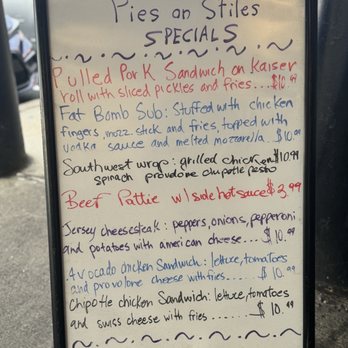 Pies on Stiles
SPECIALS
Pulled Pork Sandwich on Kaiser
roll with sliced pickles and fries...$10.99
Fat Bomb Sub: Stuffed with chicken
fingers, mozz. stick and fries, topped with
vodka sauce and melted mozzarella. $10.99
Southwest wrap: grilled chicken $10.99
spinach provolone chipotle pesto
Beef Pattie w/ side hot sauce $3.99
Jersey cheesesteak: peppers, onions, pepperoni
and potatoes with american cheese...$10.99
Avocado chicken Sandwich: lettuce, tomatoes
and provolone cheese with fries.......$10.99
Chipotle chicken Sandwich: lettuce, tomatoes
and swiss cheese with fries........$10.99